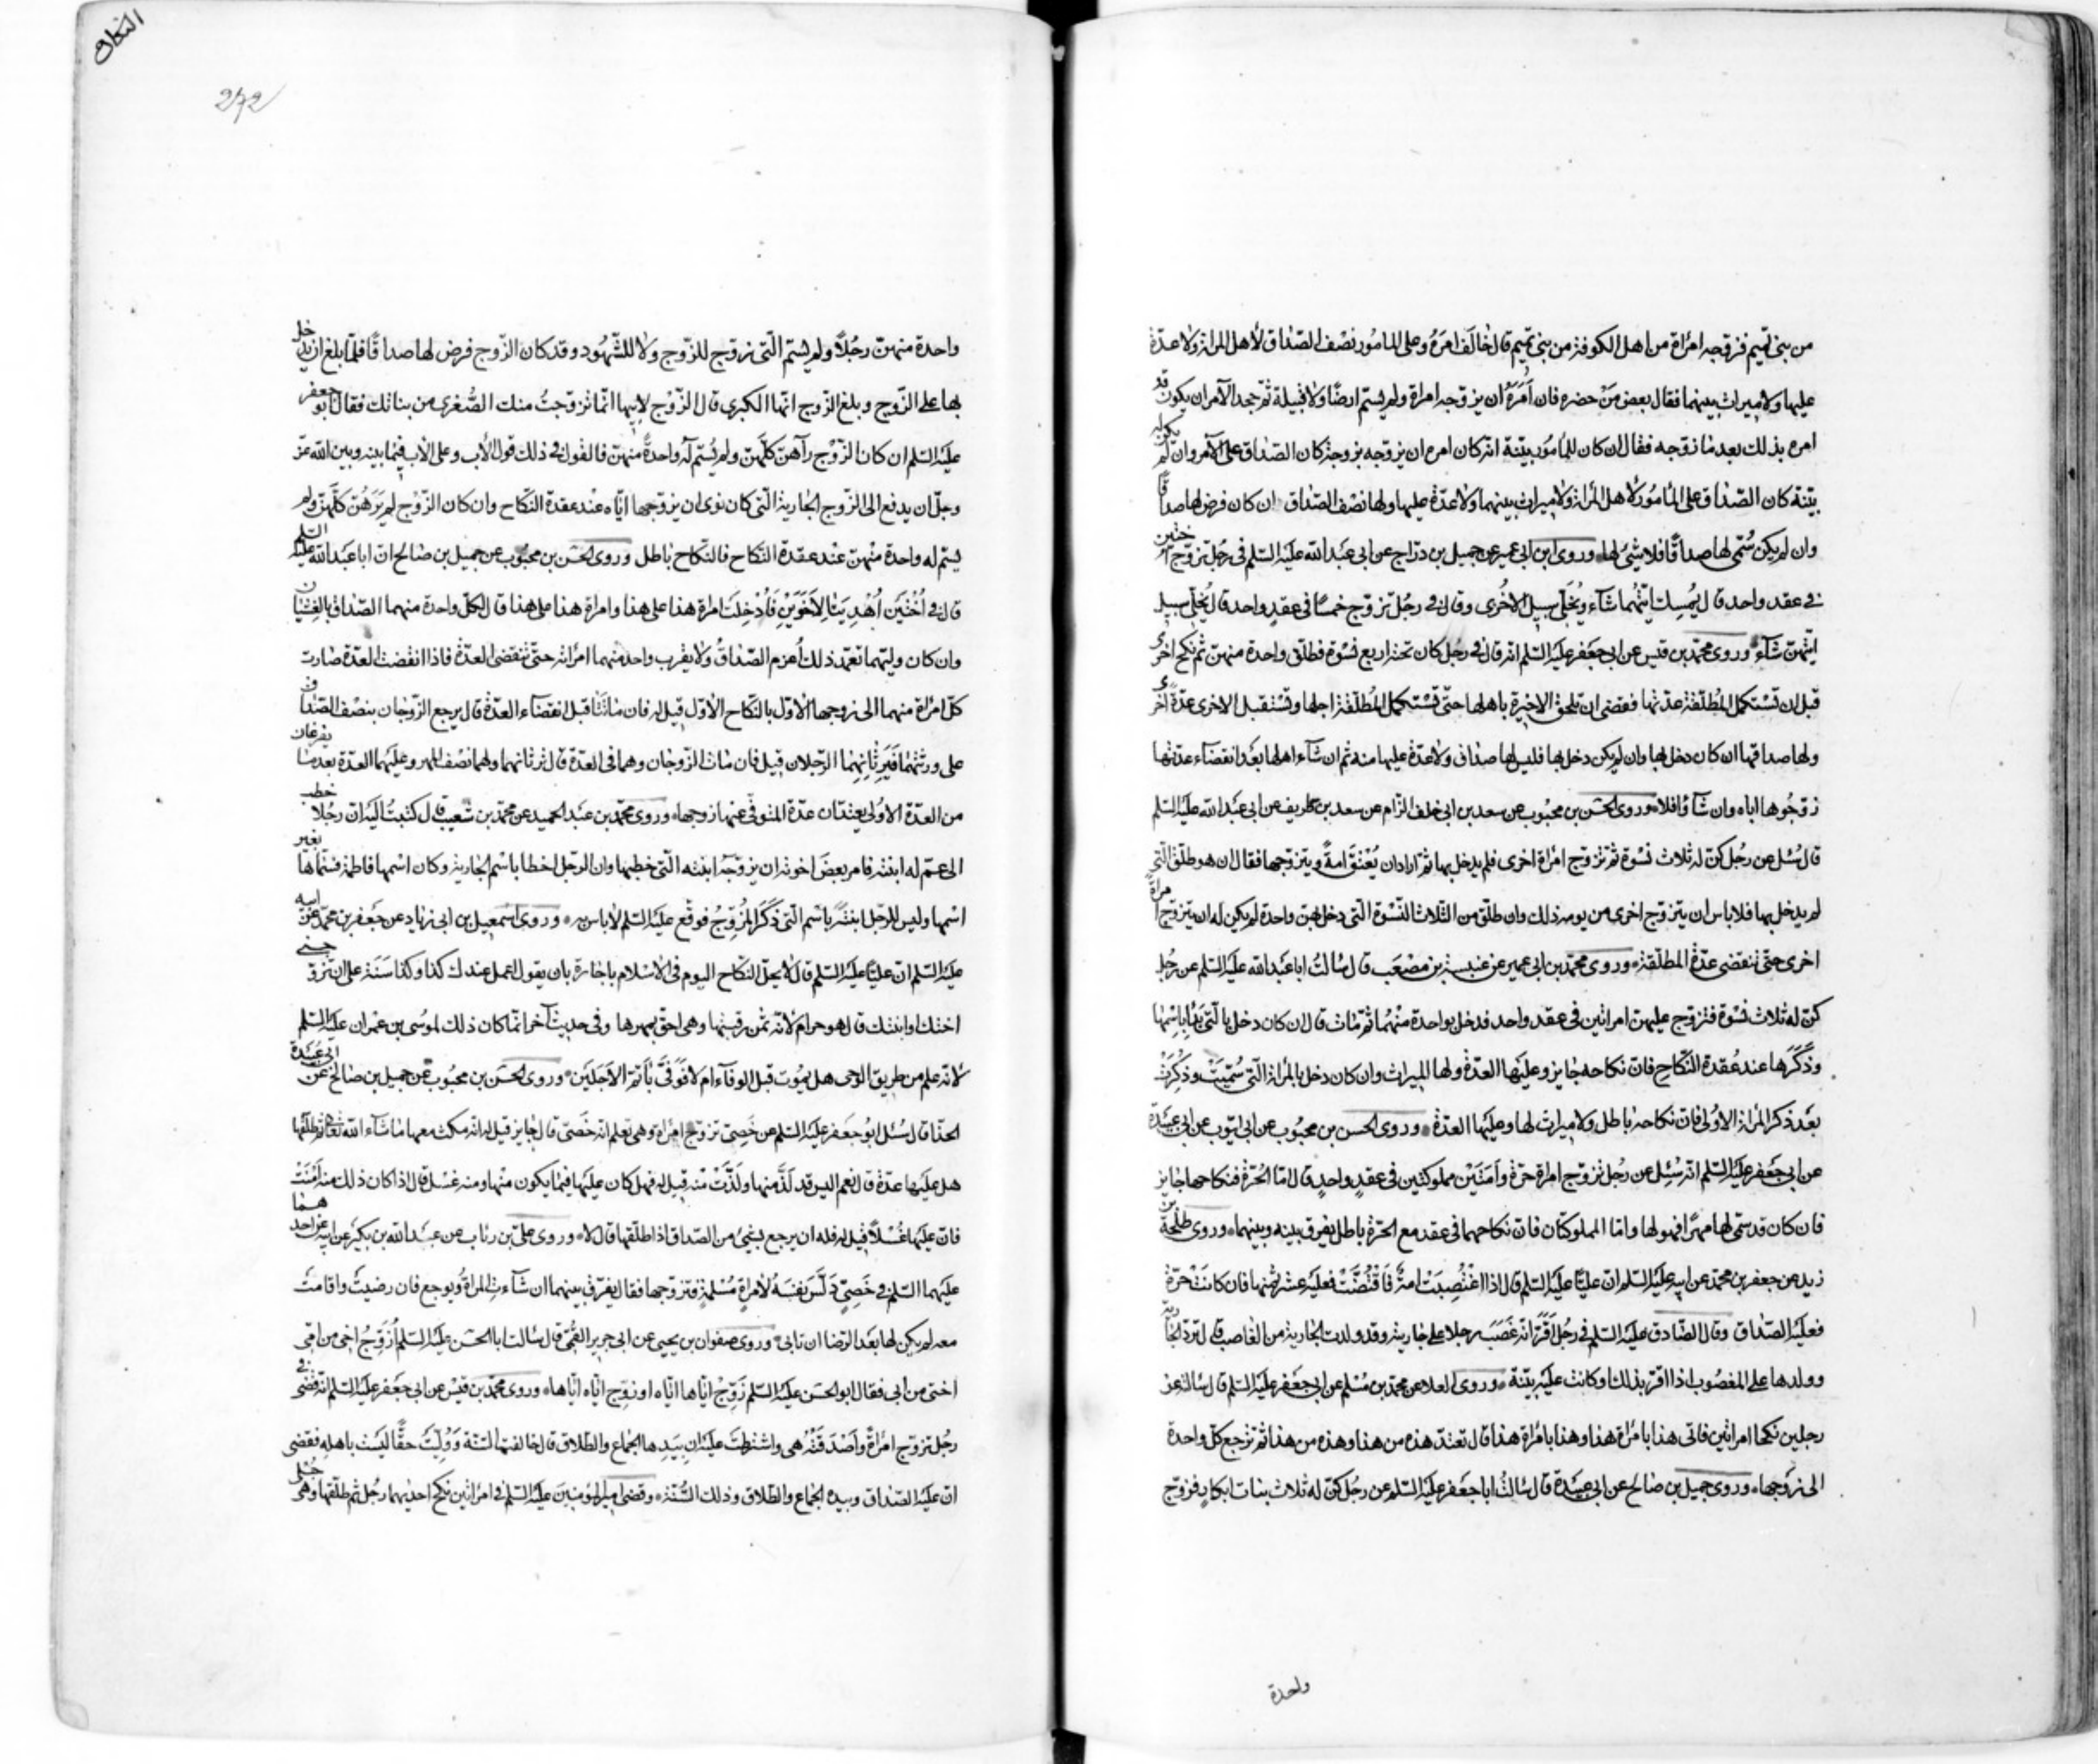 من بنی تمیم فزوجه امراة من اهل الکوفة من بنی تمیم قال خالف امره وعلی المامور نصف الصداق لأهل المراة ولا عدة
علیها ولا میراث بینهما فقال بعض من حضره فان امره ان یزوجه امراة ولم یسم ارضا ولا قبیلة ثم جحد الآمر ان یکون قد
امره بذلک بعد ما زوجه فقال ان کان للمامور بینة انه کان امره ان یزوجه بزوجة کان الصداق علی الآمر وان لم یکن له
بینة کان الصداق علی المامور لاهل المراة ولا میراث بینهما ولا عدة علیها ولها نصف الصداق ان کان فرض لها صداقا
وان لم یکن سمی لها صداقا فلا شئ لها وروی ابن ابی عمیر عن جمیل بن دراج عن ابی عبد الله علیه السلم فی رجل تزوج اختین
فی عقد واحد قال یمسک ایتهما شآء ویخلی سبیل الاخری وقال فی رجل تزوج خمسا فی عقد واحد قال یخلی سبیل
ایتهن شآء وروی محمد بن قیس عن ابی جعفر علیه السلم انه قال فی رجل کان تحته اربع نسوة فطلق واحدة منهن ثم نکح اخری
قبل ان تستکمل المطلقة عدتها فقضی ان تلحق الاخیرة باهلها حتی تستکمل المطلقة اجلها وتستقبل الاخری عدة اخری
ولها صداقها ان کان دخل بها وان لم یکن دخل بها فلیس لها صداق ولا عدة علیها منه ثم ان شآء اهلها بعد انقضاء عدتها
زوجوها ایاه وان شآؤا فلا وروی الحسن بن محبوب عن سعد بن ابی خلف الزام عن سعد بن طریف عن ابی عبد الله علیه السلم
قال سئل عن رجل کن له ثلاث نسوة ثم تزوج امراة اخری فلم یدخل بها ثم اراد ان یعتق امة ویتزوجها فقال ان هو طلق التی
لم یدخل بها فلا باس ان یتزوج اخری من یومه ذلک وان طلق من الثلاث النسوة التی دخل بهن واحدة لم یکن له ان یتزوج امراة
اخری حتی تنقضی عدة المطلقة وروی محمد بن ابی عمیر عن عنبسة بن مصعب قال سالت ابا عبد الله علیه السلم عن رجل
کن له ثلاث نسوة فتزوج علیهن امراتین فی عقد واحد فدخل بواحدة منهما ثم مات قال ان کان دخل بالتی بدأ باسمها
وذکرها عند عقدة النکاح فان نکاحه جایز وعلیها العدة ولها المیراث وان کان دخل بالمراة التی سمیت وذکرت
بعد ذکر المراة الاولی فان نکاحه باطل ولا میراث لها وعلیها العدة وروی الحسن بن محبوب عن ابی ایوب عن ابی عبیدة
عن ابی جعفر علیه السلم انه سئل عن رجل تزوج امراة حرة وامتین مملوکتین فی عقد واحد قال اما الحرة فنکاحها جایز
فان کان قد سمی لها مهرا فهو لها واما المملوکتان فان نکاحهما فی عقد مع الحرة باطل یفرق بینه وبینهما وروی طلحة بن
زید عن جعفر بن محمد عن ابیه علیه السلم ان علیا علیه السلم قال اذا اغتصبت امة فاقتضت فعلیه عشر ثمنها فان کانت حرة
فعلیه الصداق وقال الصادق علیه السلم فی رجل اقر انه غصب رجلا علی جاریته وقد ولدت الجاریة من الغاصب قال ترد الجاریة
وولدها علی المغصوب اذا اقر بذلک او کانت علیه بینة وروی العلا عن محمد بن مسلم عن ابی جعفر علیه السلم قال سالته عن
رجلین نکحا امراتین فاتی هذا بامراة هذا وهذا بامراة هذا قال تعتد هذه من هذا وهذه من هذا ثم ترجع کل واحدة
الی زوجها وروی جمیل بن صالح عن ابی عبیدة قال سالت ابا جعفر علیه السلم عن رجل کن له ثلاث بنات ابکار فزوج
واحدة
النکاح
272
واحدة منهن رجلا ولم یسم التی زوج للزوج ولا للشهود وقد کان الزوج فرض لها صداقا فلما بلغ ان یدخل
بها علی الزوج وبلغ الزوج انها الکبری قال الزوج لابیها انما تزوجت منک الصغری من بناتک فقال ابو جعفر
علیه السلم ان کان الزوج رآهن کلهن ولم یسم له واحدة منهن فالقول فی ذلک قول الأب وعلی الاب فیما بینه وبین الله عز
وجل ان یدفع الی الزوج الجاریة التی کان نوی ان یزوجها ایاه عند عقدة النکاح وان کان الزوج لم یرهن کلهن ولم
یسم له واحدة منهن عند عقدة النکاح فالنکاح باطل وروی الحسن بن محبوب عن جمیل بن صالح ان ابا عبد الله علیه السلم
قال فی اختین اهدیتا لاخوین فادخلت امراة هذا علی هذا وامراة هذا علی هذا قال لکل واحدة منهما الصداق بالغشیان
وان کان ولیهما تعمد ذلک اغرم الصداق ولا یقرب واحد منهما امراته حتی تنقضی العدة فاذا انقضت العدة صارت
کل امراة منهما الی زوجها الاول بالنکاح الاول قیل له فان ماتتا قبل انقضاء العدة قال یرجع الزوجان بنصف الصداق
علی ورثتهما فیرثانهما الرجلان قیل فان مات الزوجان وهما فی العدة قال ترثانهما ولهما نصف المهر وعلیهما العدة بعد ما یفرغان
من العدة الاولی یعتدان عدة المتوفی عنها زوجها وروی محمد بن عبد الحمید عن محمد بن شعیب قال کتبت الیه ان رجلا خطب
الی عم له ابنته فامر بعض اخوته ان یزوجه ابنته التی خطبها وان الرجل اخطا باسم الجاریة وکان اسمها فاطمة فسماها بغیر
اسمها ولیس للرجل ابنة باسم التی ذکر المزوج فوقع علیه السلم لا باس به وروی اسمعیل بن ابی زیاد عن جعفر بن محمد عن ابیه
علیه السلم ان علیا علیه السلم قال لا یحل النکاح الیوم فی الاسلام باجارة بان یقول اعمل عندک کذا وکذا سنة علی ان تزوجنی
اختک او ابنتک قال هو حرام لانه ثمن رقبتها وهی احق بمهرها وفی حدیث آخر انما کان ذلک لموسی بن عمران علیه السلم
لانه علم من طریق الوحی هل یموت قبل الوفاء ام لا فوفی باتم الاجلین وروی الحسن بن محبوب عن جمیل بن صالح عن ابی عبیدة
الحذا قال سئل ابو جعفر علیه السلم عن خصی تزوج امراة وهی تعلم انه خصی قال جایز قیل له انه مکث معها ما شآء الله تعالی ثم طلقها
هل علیها عدة قال نعم الیس قد لذ منها ولذت منه قیل له فهل کان علیها فیما یکون منها ومنه غسل قال اذا کان ذلک منه امنت
فان علیها غسلا قیل له فله ان یرجع بشئ من الصداق اذا طلقها قال لا وروی علی بن رئاب عن عبد الله بن بکیر عن ابیه عن احدهما
علیهما السلم فی خصی دلس نفسه لامراة مسلمة فتزوجها فقال یفرق بینهما ان شآءت المراة ویوجع فان رضیت واقامت
معه لم یکن لها بعد الرضا ان تابی وروی صفوان بن یحیی عن ابی جریر القمی قال سالت ابا الحسن علیه السلم ازوج اخی من امی
اختی من ابی فقال ابو الحسن علیه السلم زوج ایاها ایاه او زوج ایاه ایاها وروی محمد بن قیس عن ابی جعفر علیه السلم انه قضی فی
رجل تزوج امراة واصدقته هی واشترطت علیه ان بیدها الجماع والطلاق قال خالفت السنة وولیت حقا لیست باهله فقضی
ان علیه الصداق وبیده الجماع والطلاق وذلک السنة وقضی امیر المؤمنین علیه السلم فی امراتین نکح احدیهما رجل ثم طلقها وهی حبلی